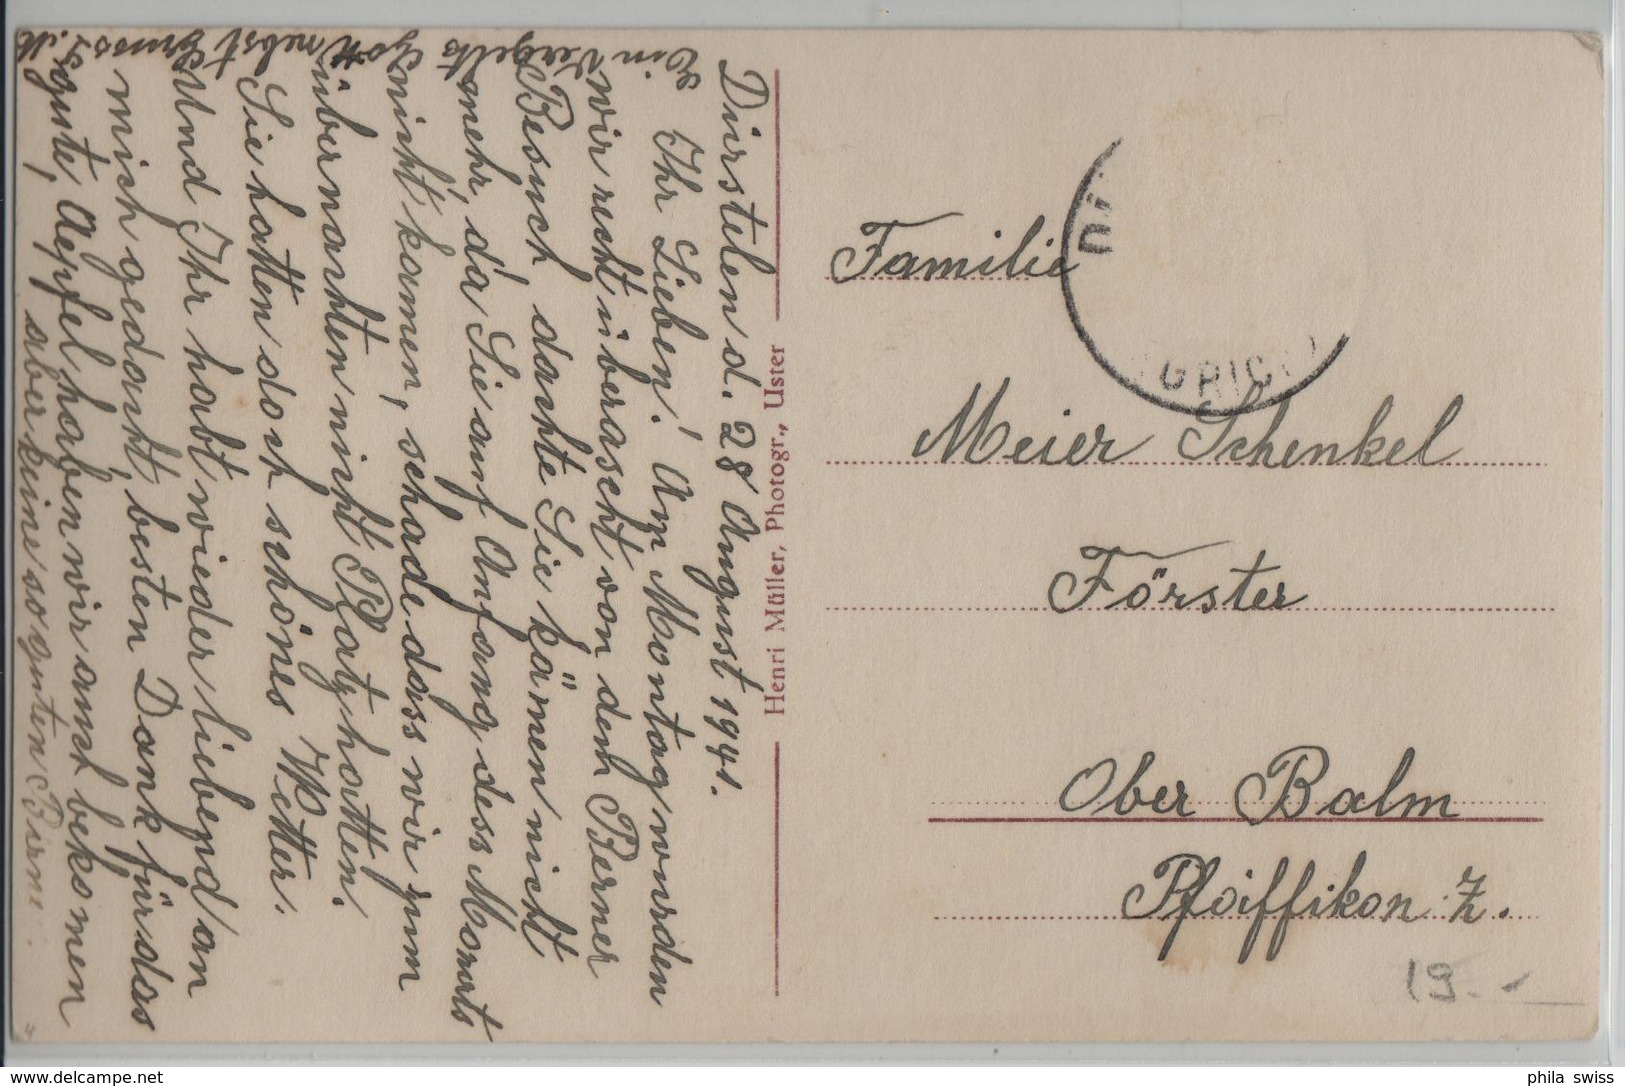 Dürstelen d. 28 August 1941.
Ihr Lieben! Am Montag wurden
wir recht überascht von dem Berner
Besuch dachte Sie kämen nicht
mehr, da Sie auf Anfang dess Monats
nicht kamen, schade dass wir zum
übernachten nicht Platz hatten.
Sie hatten doch schönes Wetter.
Und Ihr habt wieder liebend an
mich gedacht, besten Dank für das
gute, Aepfel haben wir auch bekomen
aber keine so guten Birne.
Ein Vergelts Gott nebst Gruss
Henri Müller, Photogr., Uster
Familie
Meier Schenkel
Förster
Ober Balm
Pfäiffikon Z.
19.-
phila swiss
www.delcampe.net